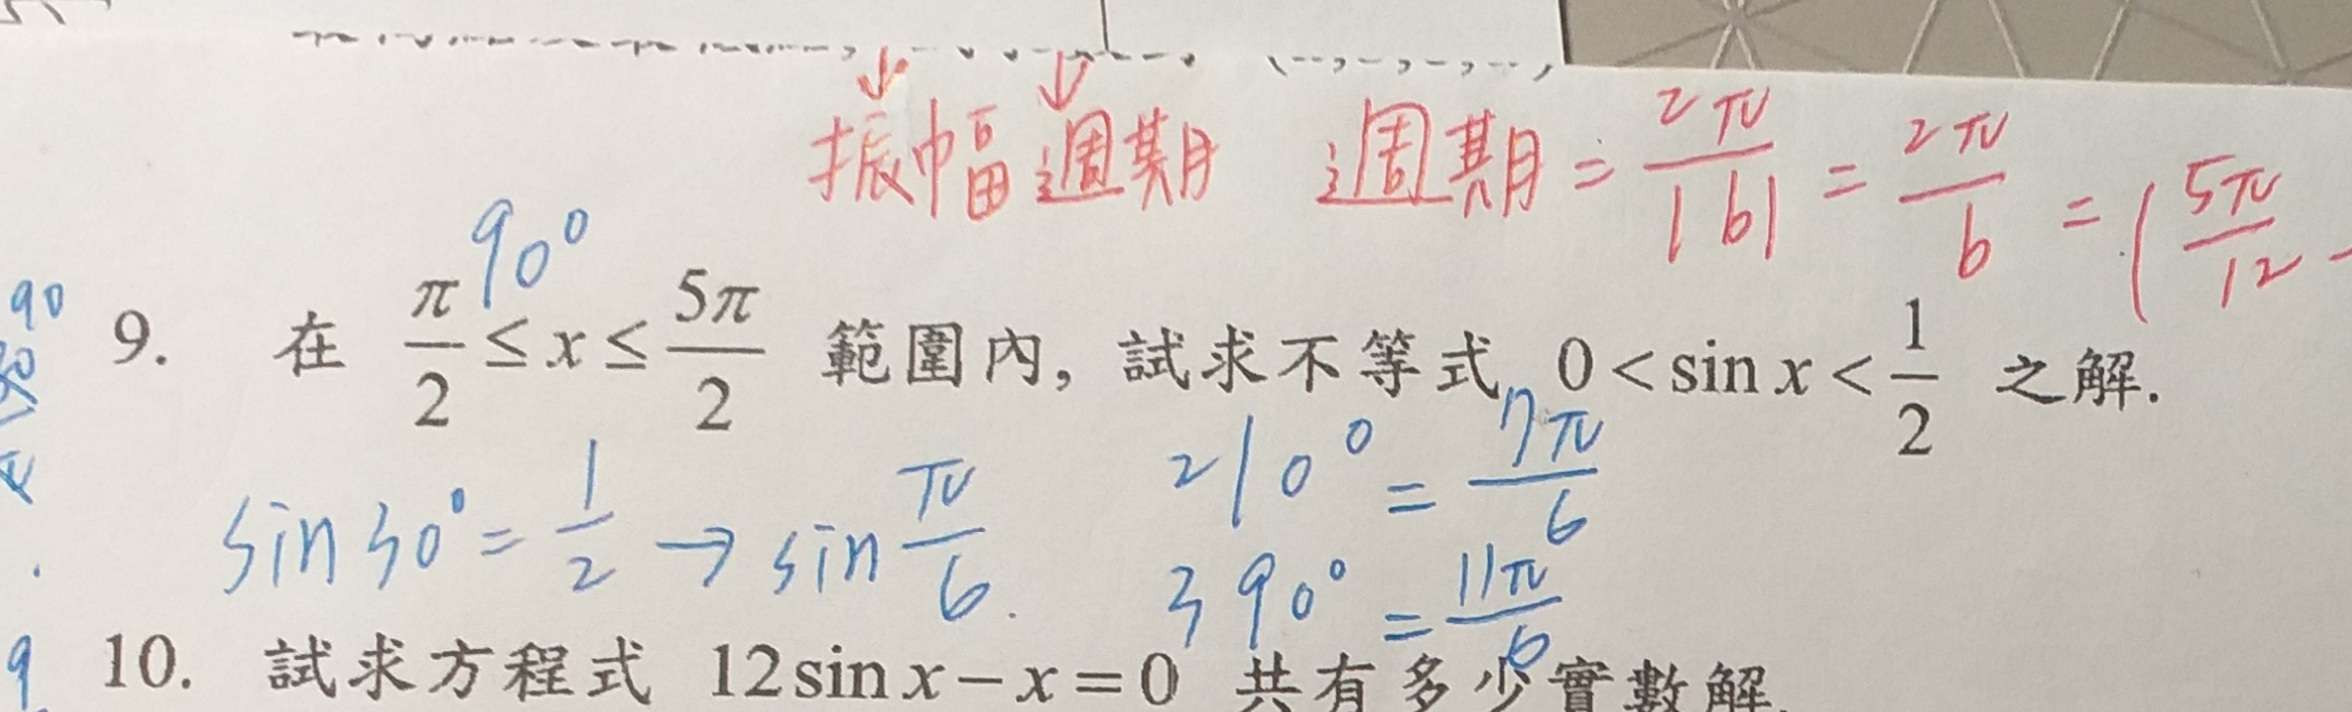 振幅 週期 週期 = 2π/|b| = 2π/6 = (5π/12 -
90°
90
9. 在 π/2 ≤ x ≤ 5π/2 範圍內, 試求不等式 0 < sin x < 1/2 之解.
sin 30° = 1/2 → sin π/6. 210° = 7π/6
390° = 11π/6
10. 試求方程式 12 sin x − x = 0 共有多少實數解.